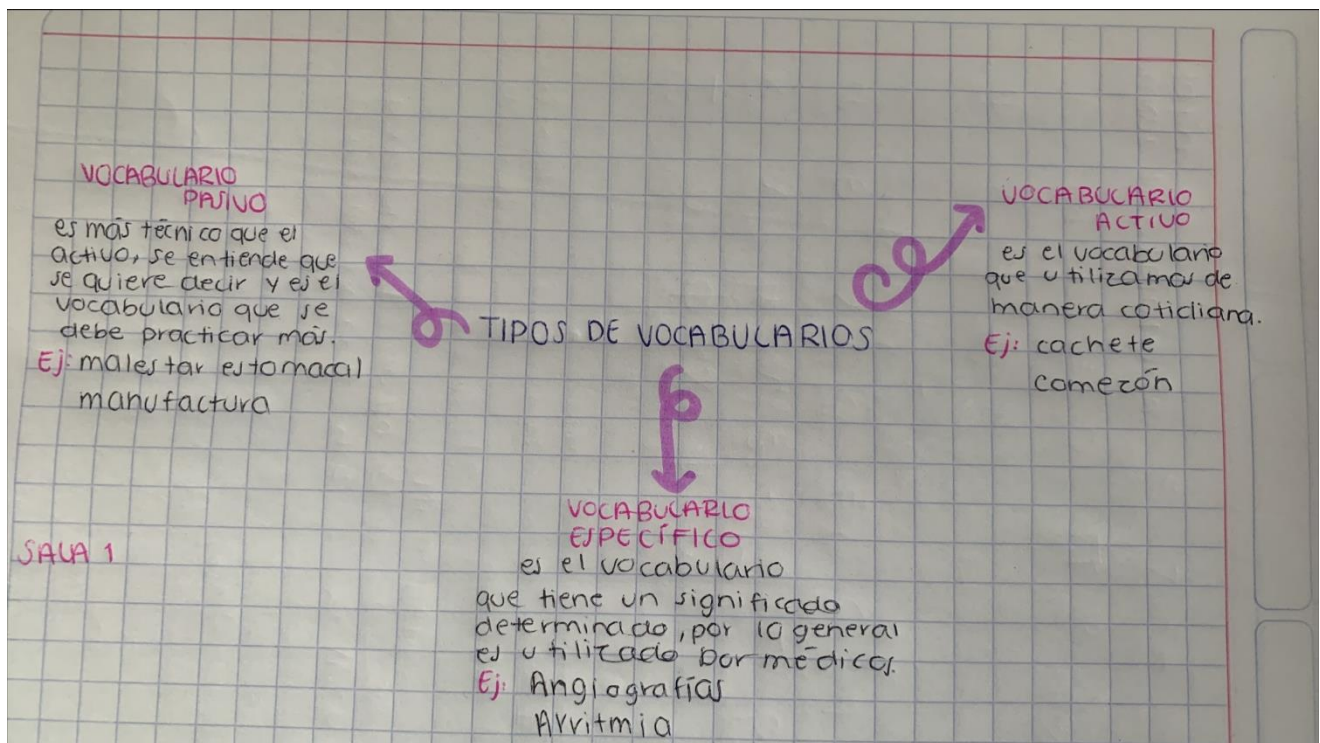 VOCABULARIO
PASIVO
es más técnico que el
activo, se entiende que
se quiere decir y es el
vocabulario que se
debe practicar más.
Ej: malestar estomacal
manufactura
TIPOS DE VOCABULARIOS
VOCABULARIO
ACTIVO
es el vocabulario
que utilizamos de
manera cotidiana.
Ej: cachete
comezón
VOCABULARIO
ESPECÍFICO
es el vocabulario
que tiene un significado
determinado, por lo general
es utilizado por médicos.
Ej: Angiografías
Arritmia
SALA 1